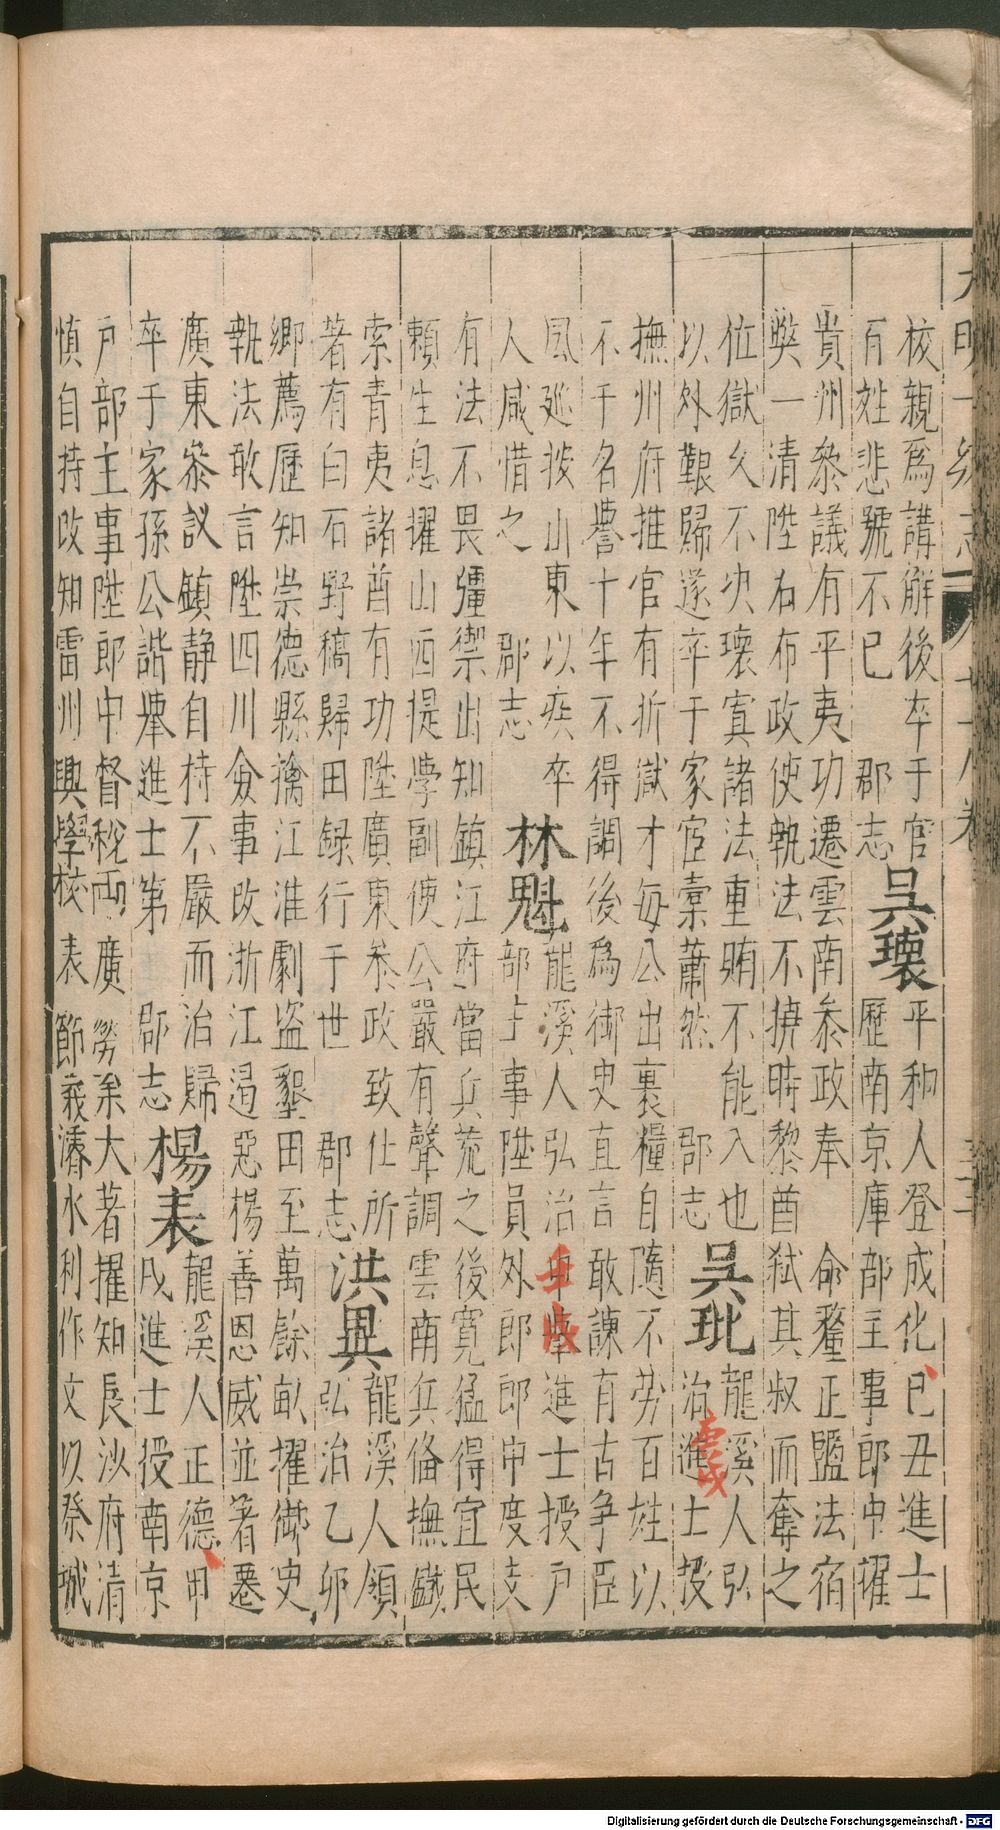 校親爲講解後卒于官吳瓌平和人登成化己丑進士
百姓悲號不已 郡志 歷南京庫部主事郎中擢
貴州叅議有平夷功遷雲南叅政奉 命釐正鹽法宿
獘一清陞右布政使執法不撓時黎酋弒其叔而奪之
位獄久不决瓌寘諸法重賄不能入也
以外艱歸遂卒于家宦橐蕭然 郡志 吳玭龍溪人弘
治庚戌進士授
撫州府推官有折獄才每公出裹糧自隨不勞百姓以
不干名譽十年不得調後爲御史直言敢諫有古爭臣
風廵按山東以疾卒
人咸惜之 郡志 林魁龍溪人弘治壬戌進士授戶
部主事陞員外郎郎中度支
有法不畏彊禦出知鎮江府當兵荒之後寛猛得宜民
賴生息擢山西提學副使公嚴有聲調雲南兵俻撫鐵
索青夷諸酋有功陞廣東叅政致仕所
著有白石野稿歸田録行于世 郡志 洪異龍溪人領
弘治乙卯
鄉薦歷知崇德縣擒江淮劇盜墾田至萬餘畝擢御史
執法敢言陞四川僉事改浙江遏惡楊善恩威並著遷
廣東叅議鎮静自持不嚴而治歸
卒于家孫公諧舉進士第 郡志 楊表龍溪人正德甲
戌進士授南京
戶部主事陞郎中督稅兩廣勞矣大著擢知長沙府清
慎自持改知雷州興學校表節義濬水利作文以祭
Digitalisierung gefördert durch die Deutsche Forschungsgemeinschaft - DFG